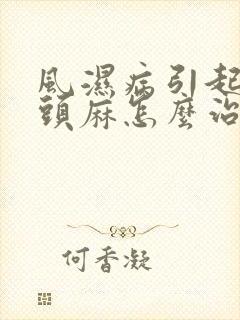 風濕病引起
頭麻怎麼治
何香凝